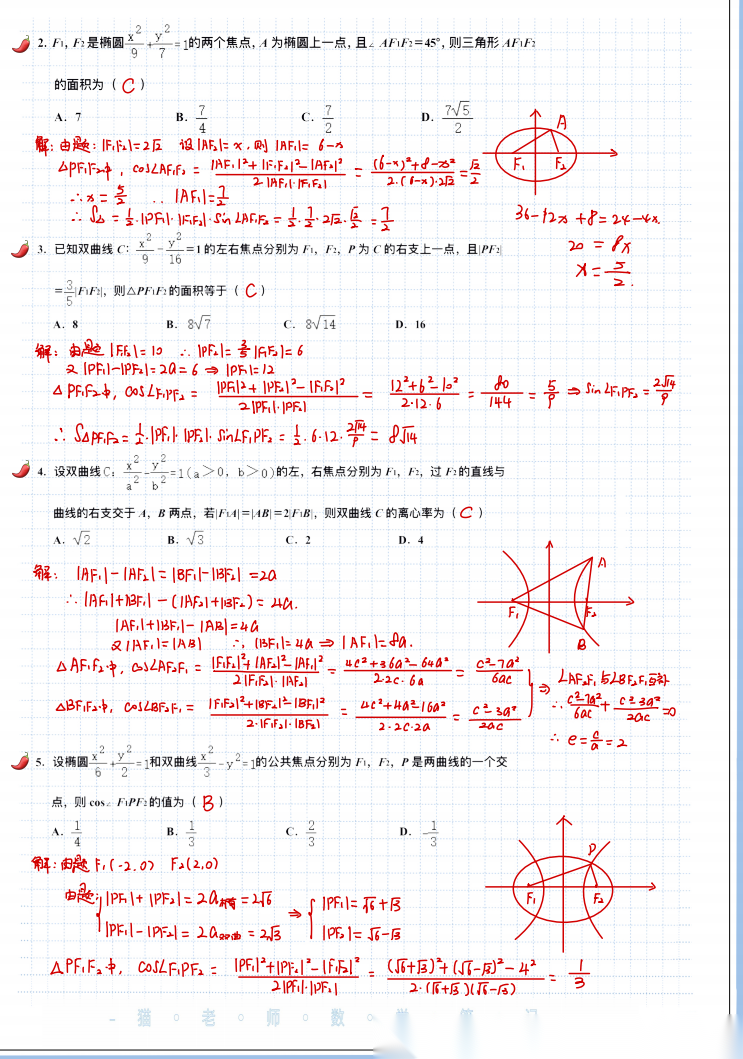 2. F₁，F₂是椭圆x²/9+y²/7=1的两个焦点，A 为椭圆上一点，且∠AF₁F₂＝45°，则三角形 AF₁F₂
的面积为（ C ）
A．7 B．7/4 C．7/2 D．7√5/2
解: 由题: |F₁F₂|=2√2 设|AF₂|=x，则 |AF₁|= 6-x
△PF₁F₂中，cos∠AF₁F₂ = (|AF₁|²+|F₁F₂|²-|AF₂|²)/(2·|AF₁|·|F₁F₂|) = ((6-x)²+8-x²)/(2·(6-x)·2√2) = √2/2
∴x = 5/2 ∴ |AF₁|=7/2
∴ S△ = 1/2·|PF₁|·|F₁F₂|·sin∠AF₁F₂ = 1/2·7/2·2√2·√2/2 = 7/2
A
F₁ F₂
36-12x+8=24-4x
20 = 8x
x = 5/2.
3. 已知双曲线 C：x²/9－y²/16＝1 的左右焦点分别为 F₁，F₂，P 为 C 的右支上一点，且|PF₂|
＝3/5|F₁F₂|，则△PF₁F₂的面积等于（ C ）
A．8 B．8√7 C．8√14 D．16
解: 由题 |F₁F₂|=10 ∴ |PF₂|= 3/5 |F₁F₂|=6
又 |PF₁|-|PF₂|=2a=6 ⇒ |PF₁|=12
△PF₁F₂中，cos∠F₁PF₂ = (|PF₁|²+|PF₂|²-|F₁F₂|²)/(2|PF₁|·|PF₂|) = (12²+6²-10²)/(2·12·6) = 80/144 = 5/9 ⇒ sin∠F₁PF₂ = 2√14/9
∴ S△PF₁F₂ = 1/2·|PF₁|·|PF₂|·sin∠F₁PF₂ = 1/2·6·12·2√14/9 = 8√14
4. 设双曲线C：x²/a²-y²/b²=1(a＞0，b＞0)的左，右焦点分别为 F₁，F₂，过 F₂的直线与
曲线的右支交于 A，B 两点，若|F₁A|＝|AB|＝2|F₁B|，则双曲线 C 的离心率为（ C ）
A．√2 B．√3 C．2 D．4
解: |AF₁|-|AF₂|=|BF₁|-|BF₂|=2a
∴ |AF₁|+|BF₁|-(|AF₂|+|BF₂|)=4a.
|AF₁|+|BF₁|-|AB|=4a
又|AF₁|=|AB| ∴ |BF₁|=4a ⇒ |AF₁|=8a.
A
F₁ F₂
B
△AF₁F₂中，cos∠AF₂F₁ = (|F₁F₂|²+|AF₂|²-|AF₁|²)/(2|F₁F₂|·|AF₂|) = (4c²+36a²-64a²)/(2·2c·6a) = (c²-7a²)/(6ac)
△BF₁F₂中，cos∠BF₂F₁ = (|F₁F₂|²+|BF₂|²-|BF₁|²)/(2·|F₁F₂|·|BF₂|) = (4c²+4a²-16a²)/(2·2c·2a) = (c²-3a²)/(2ac)
⇒ ∠AF₂F₁与∠BF₂F₁互补
∴ (c²-7a²)/(6ac) + (c²-3a²)/(2ac) =0
∴ e=c/a=2
5. 设椭圆x²/6+y²/2=1和双曲线x²/3-y²=1的公共焦点分别为 F₁，F₂，P 是两曲线的一个交
点，则 cos∠F₁PF₂的值为（ B ）
A．1/4 B．1/3 C．2/3 D．-1/3
解: 由题 F₁(-2,0) F₂(2,0)
由题: { |PF₁|+|PF₂|=2a椭圆=2√6
|PF₁|-|PF₂|=2a双曲=2√3
⇒ { |PF₁|=√6+√3
|PF₂|=√6-√3
P
F₁ F₂
△PF₁F₂中，cos∠F₁PF₂ = (|PF₁|²+|PF₂|²-|F₁F₂|²)/(2|PF₁|·|PF₂|) = ((√6+√3)²+(√6-√3)²-4²)/(2·(√6+√3)(√6-√3)) = 1/3
猫 老 师 数 学